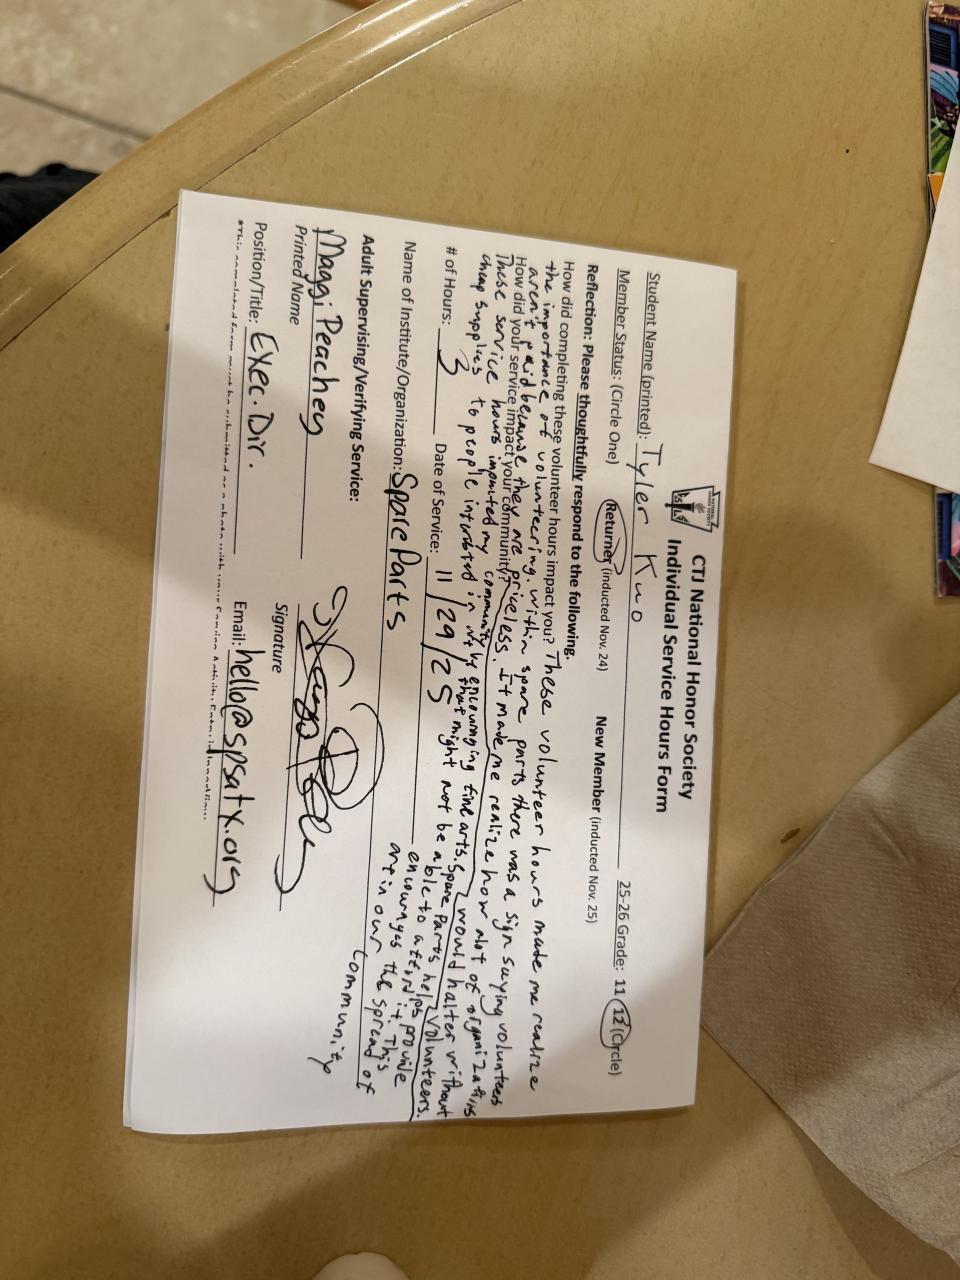 CTJ National Honor Society
Individual Service Hours Form
Student Name (printed): Tyler Kuo 25-26 Grade: 11 12 (Circle)
Member Status: (Circle One) Returner (inducted Nov. 24) New Member (inducted Nov. 25)
Reflection: Please thoughtfully respond to the following.
How did completing these volunteer hours impact you? These volunteer hours made me realize
the importance of volunteering. within spare parts there was a sign saying volunteers
aren't paid because they are priceless. It made me realize how alot of organizations
would halter without
volunteers.
How did your service impact your community?
These service hours impacted my community by encouraging fine arts. Spare Parts helps provide
cheap supplies to people in that might not be able to afford it. This
encourages the spread of
art in our community
# of Hours: 3 Date of Service: 11/29/25
Name of Institute/Organization: Spare Parts
Adult Supervising/Verifying Service:
Maggi Peachey
Printed Name Signature
Position/Title: Exec. Dir. Email: hello@spsatx.org